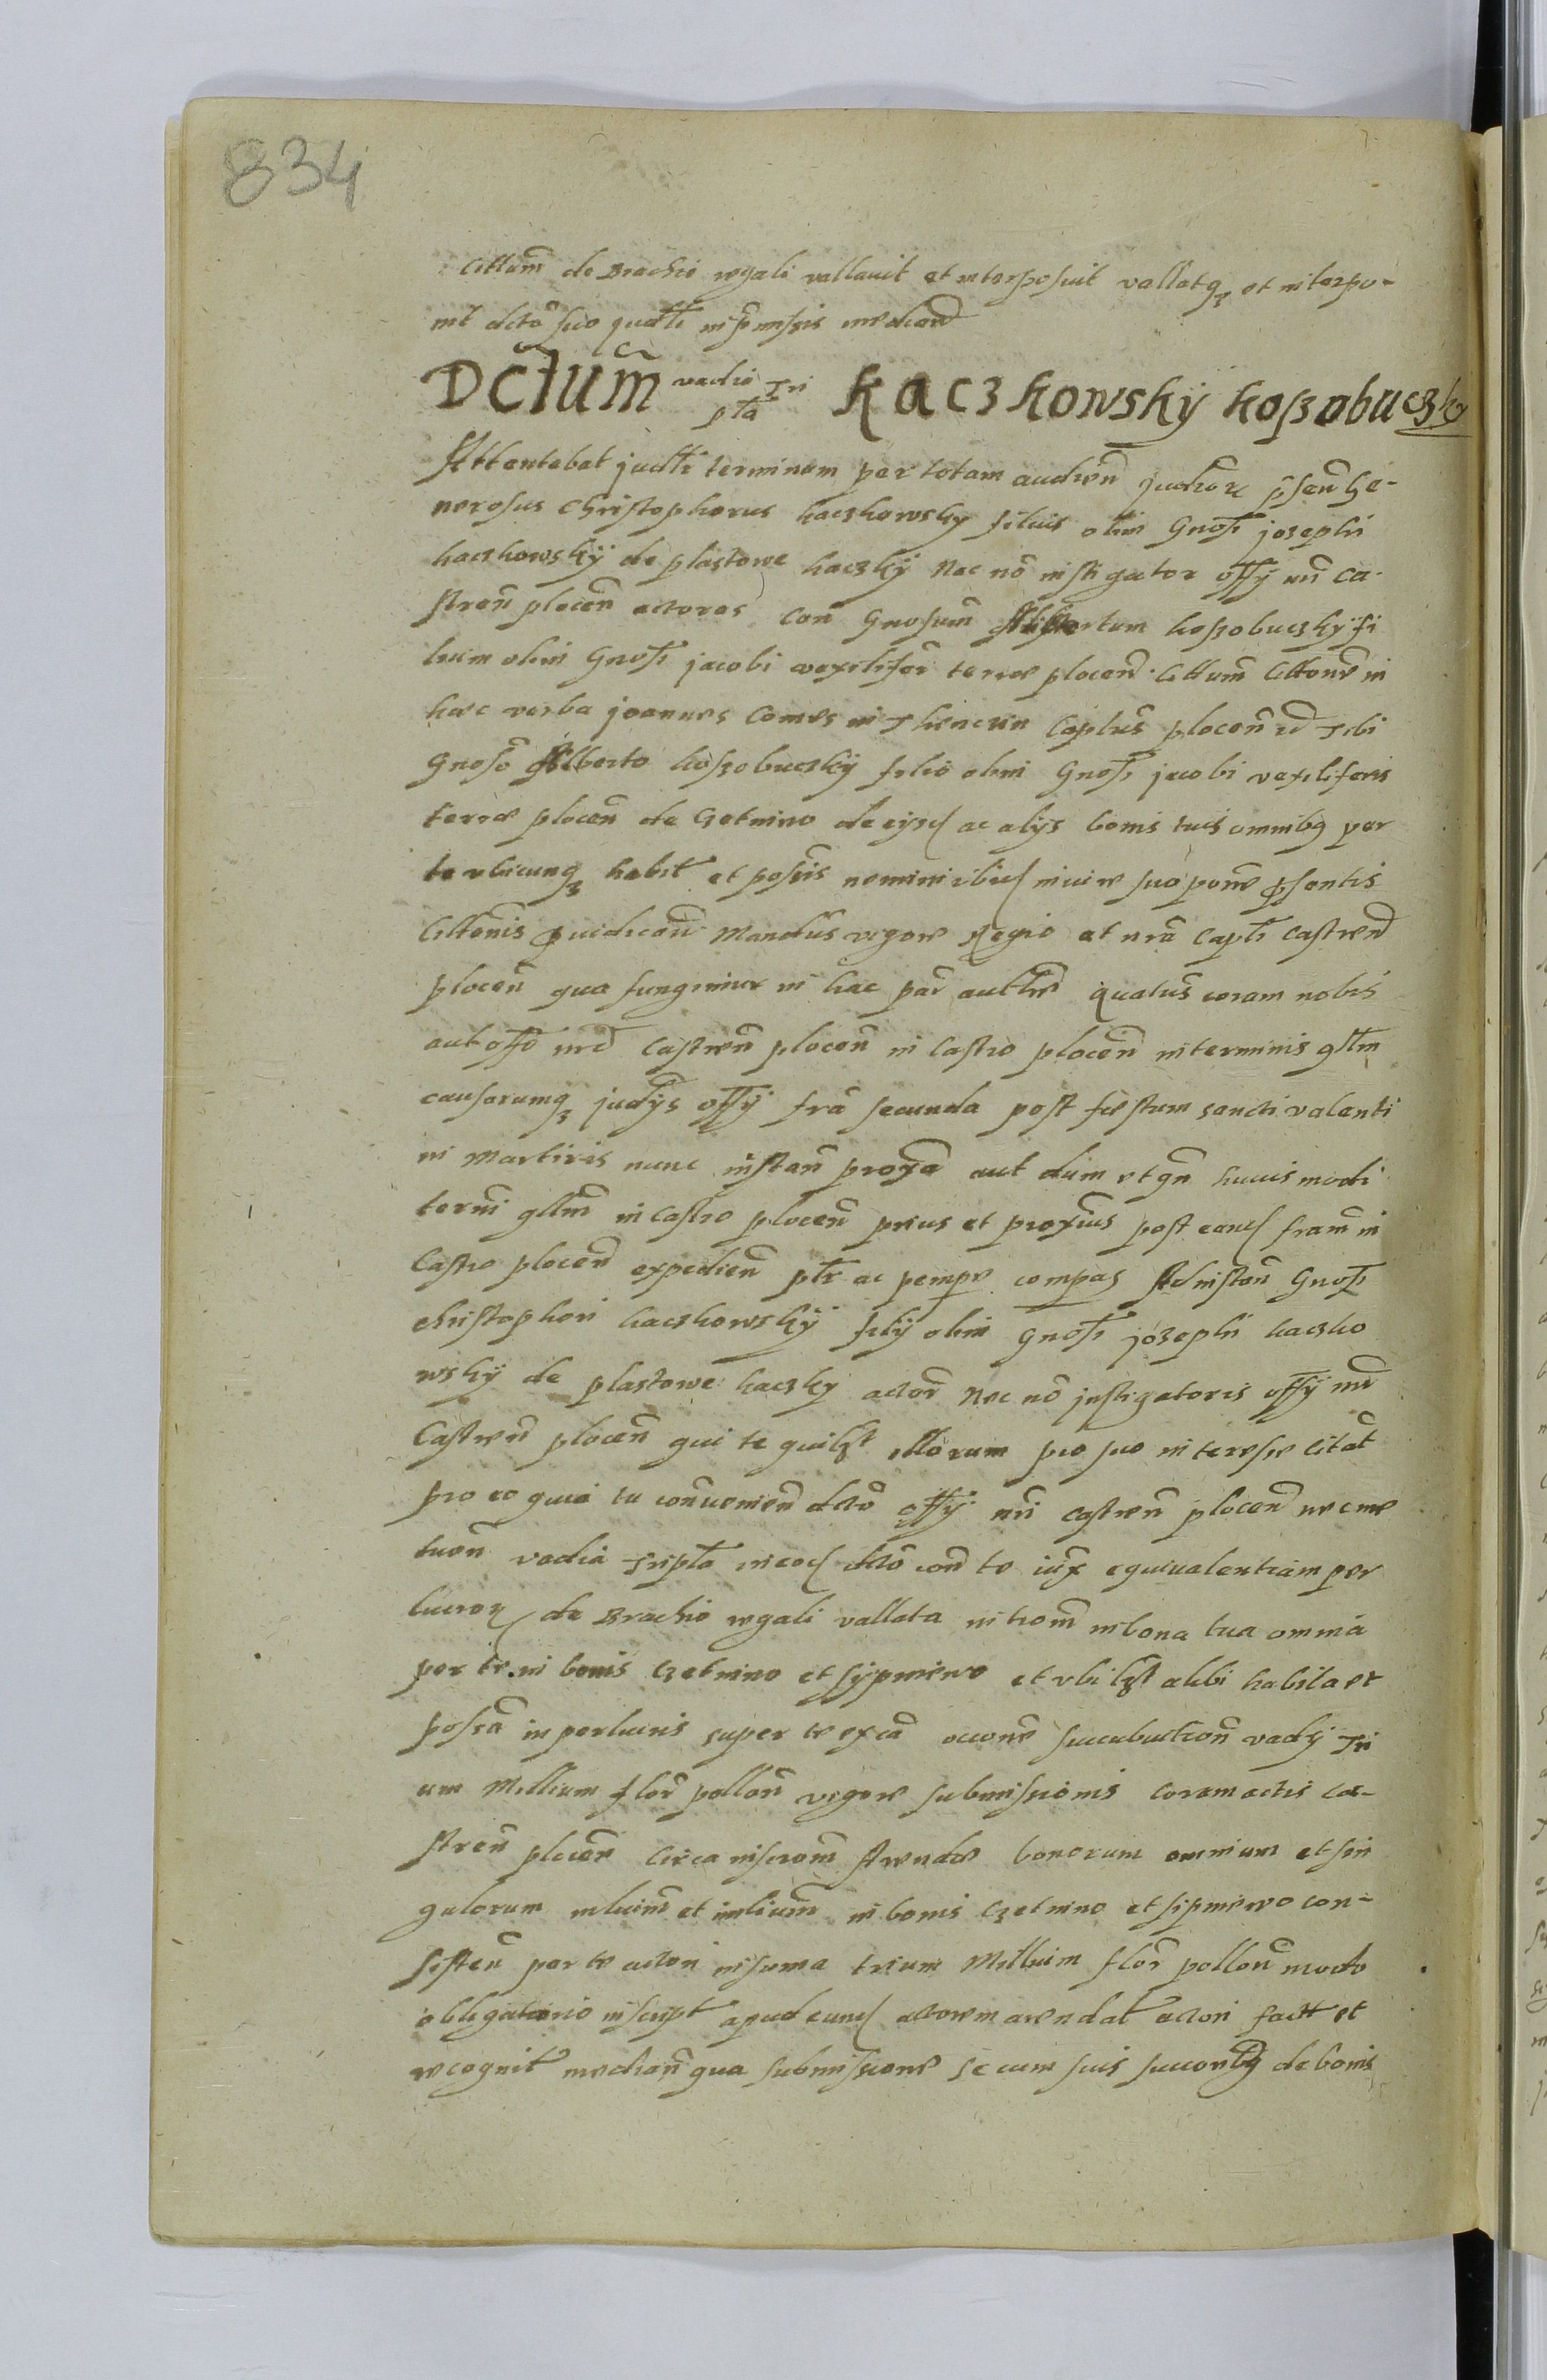 834
Cittum de Brachio regali vallavit et interposuit vallatqz et interpo-
nit dcto suo judli in pmissis median
Dctum vadio Tri pta Kaczkowsky kossobuczky
Attentabat judlr terminum per totam audien judior psen Ge-
nerosus Christophorus kaczkowsky filius olim Gnosi josephi
kaczkowsky de plastowe kaczky Nec no instigator offy nri Ca-
stren plocen actores con Gnosum Albertum kossobuczky fi
lium olim Gnosi jacobi vexiliferi terre plocen Cittum Cittone in
hec verba joannes Comes in Thenczin Captus plocen Tibi
Gnoso Alberto kossobuczky filio olim Gnosi jacobi vexiliferi
terre plocen de Czetnino de eisd ac alys bonis tuis omnibq per
te vbicunqz habit et possis nemini ibid in iure suo pone psentis
Cittonis puidican Mandus vigore Regio et nra Capti Castren
plocen qua fungimur in hac par authe quatus coram nobis
aut offo nro Castren plocen in Castro plocen in terminis qlm
causarumqz judys offy fra secunda post festum sancti valenti
ni Martiris nunc instan proxa aut dum et qn huius modi
termi qllm in Castro plocen prius et proxius post eand fram in
Castro plocen expedien ptr ac pempe compas Ad instan Gnosi
christophori kaczkowsky fily olim Gnosi josephi kaczko
wsky de plastowe kaczky actor Nec no justigatoris offy nri
Castren plocen qui te quilzt illorum pro suo interesse citat
pro eo quia tu convenien dcto offy nri castren plocen nec me
tuen vadia Tripta in eod dcto con te iux equivalentiam per
lucror de Brachio regali vallata introm in bona tua omnia
per te in bonis Czetnino et sypniewo et vbilzt alibi habita et
possa in perlucris super te exca occone succubution vady Tri
um Millium flor pollon vigore submissionis coram actis ca-
stren plocen Circa inscrom Arende bonorum omnium et sin
gulorum in bonis Czetnino et sipniewo con-
sisten per te actori in suma trium Millium flor pollon modo
obligatorio inscript apud eund actorem arendat actori fact et
recognit median qua submissione se cum suis succoribq de bonis